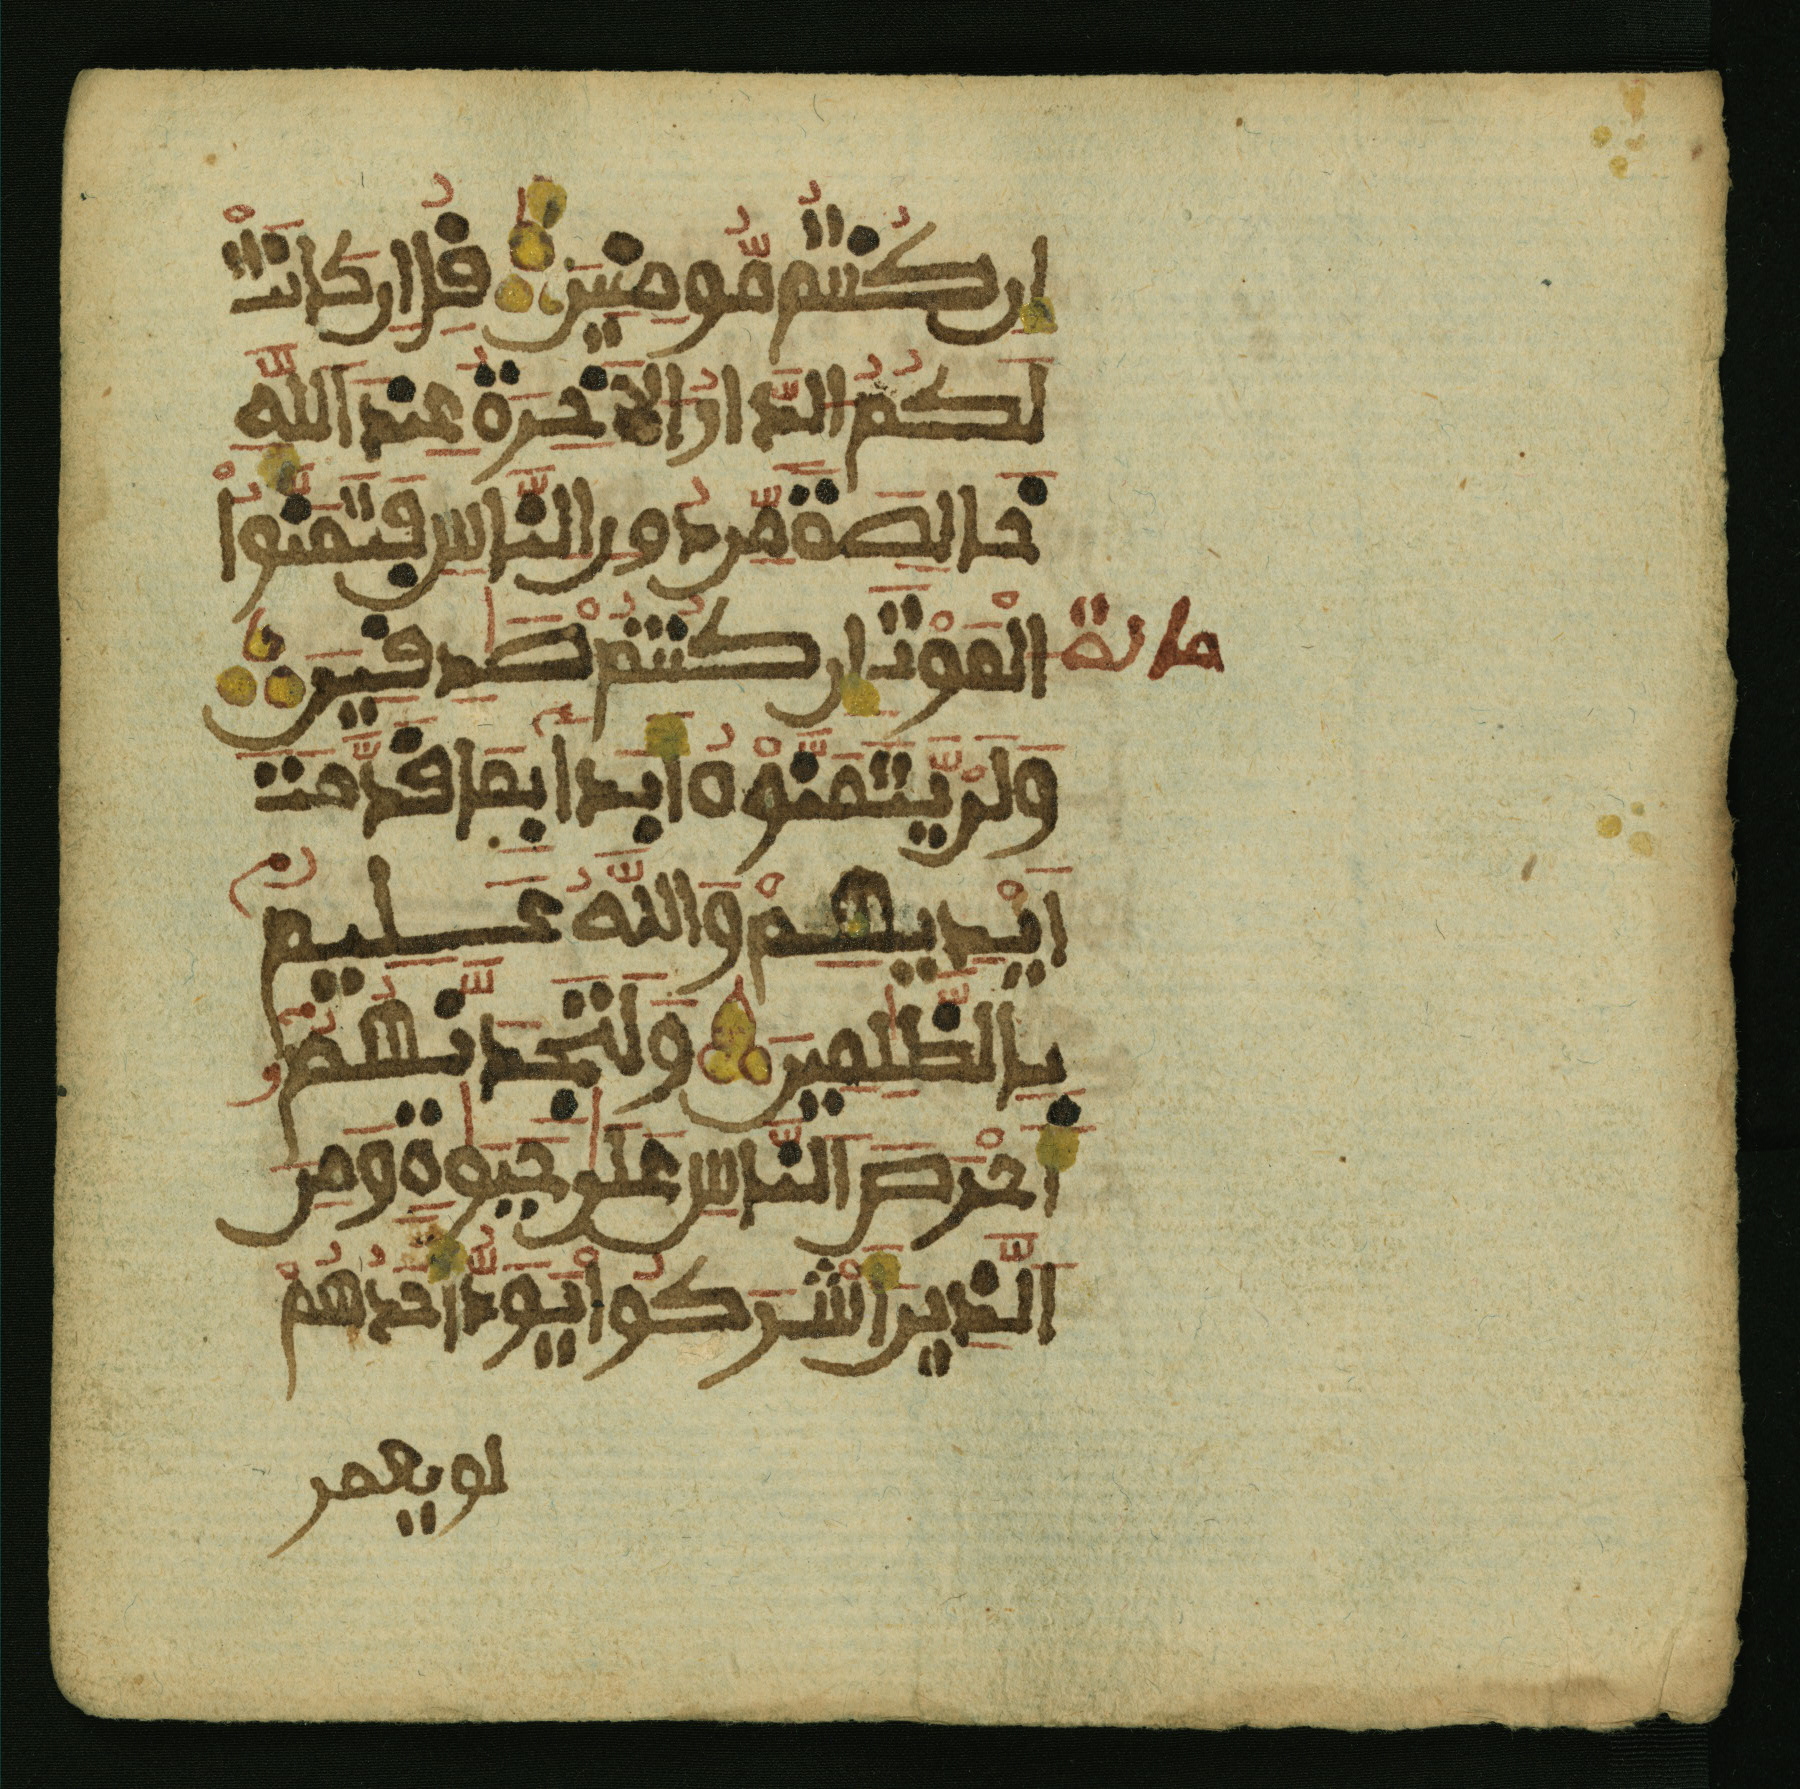 إِن كُنتُم مُّومِنِينَ قُلِ اِن كَانَتْ
لَكُمُ الدَّارُ الَاخِرَةُ عِندَ اَللَّهِ
خَالِصَةً مِّن دُونِ النَّاسِ فَتَمَنَّوُاْ
اَلْمَوْتَ إِن كُنتُمُ صَٰدِقِينَ
وَلَنْ يَّتَمَنَّوْهُ أَبَداَۢ بِمَا قَدَّمَتَ
اَيْدِيهِمْ وَاللَّهُ عَلِيمُۢ
بِالظَّٰلِمِينَ وَلَتَجِدَنَّهُمُۥ
أَحْرَصَ اَلنَّاسِ عَلَىٰ حَيَوٰةٍ وَمِنَ
اَلَّذِينَ أَشْرَكُواْ يَوَدُّ أَحَدُهُمْ
لو يعمر